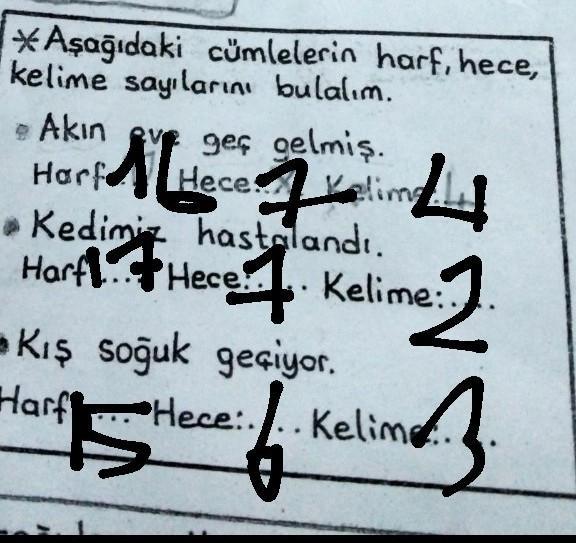 *Aşağıdaki cümlelerin harf, hece,
kelime sayılarını bulalım.
• Akın eve geç gelmiş.
Harf 16 Hece: 7 Kelime: 4
• Kedimiz hastalandı.
Harf 17 Hece: 7 Kelime: 2
• Kış soğuk geçiyor.
Harf 15 Hece: 6 Kelime: 3